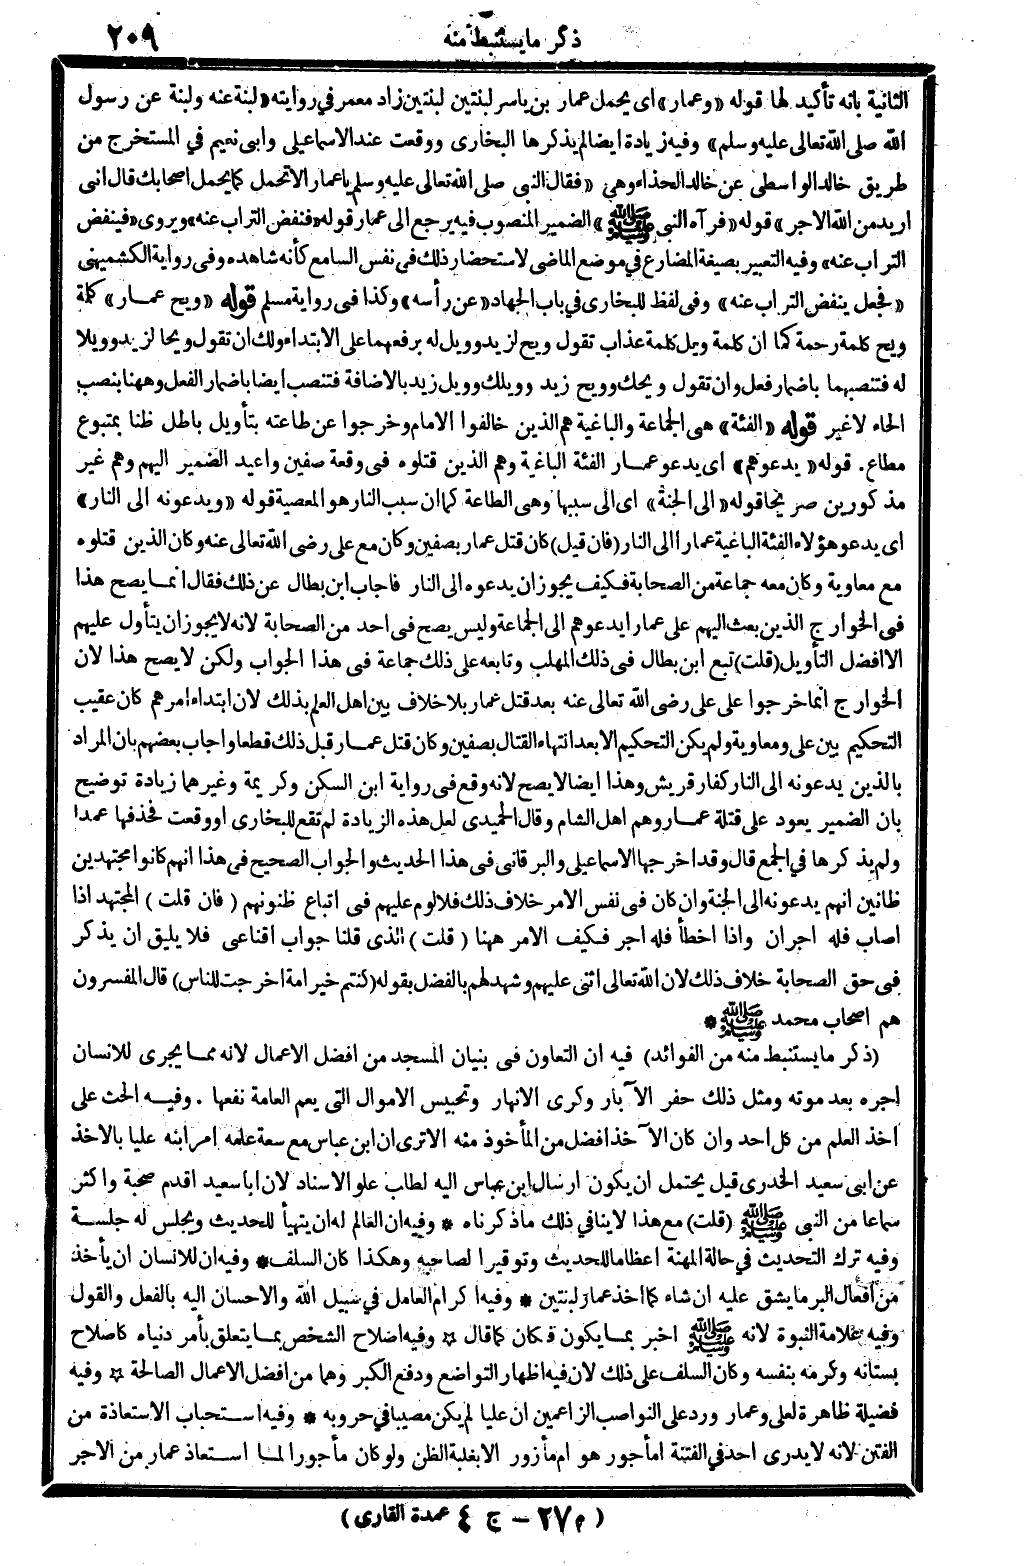 ذكر مايستنبط منه
٢٠٩
الثانية بانه تأكيد لها قوله «وعمار» اى يحمل عمار بن ياسر لبنتين لبنتين زاد معمر في روايته «لبنة عنه ولبنة عن رسول
الله صلى الله تعالى عليه وسلم» وفيه زيادة ايضا لم يذكرها البخارى ووقعت عند الاسماعيلى وابى نعيم في المستخرج من
طريق خالد الواسطى عن خالد الحذاء وهى «فقال النبى صلى الله تعالى عليه وسلم يا عمار الا تحمل كما يحمل اصحابك قال انى
اريد من الله الاجر» قوله «فرآه النبى ﷺ» الضمير المنصوب فيه يرجع الى عمار قوله «فنفض التراب عنه» ويروى «فينفض
التراب عنه» وفيه التعبير بصيغة المضارع في موضع الماضى لاستحضار ذلك فى نفس السامع كأنه شاهده وفى رواية الكشميهنى
«فجعل ينفض التراب عنه» وفى لفظ للبخارى في باب الجهاد «عن رأسه» وكذا فى رواية مسلم قوله «ويح عمار» كلمة
ويح كلمة رحمة كما ان كلمة ويل كلمة عذاب تقول ويح لزيد وويل له برفعهما على الابتداء ولك ان تقول ويحا لزيد وويلا
له فتنصبهما باضمار فعل وان تقول ويحك وويح زيد وويلك وويل زيد بالاضافة فتنصب ايضا باضمار الفعل وههنا بنصب
الحاء لا غير قوله «الفئة» هى الجماعة والباغية هم الذين خالفوا الامام وخرجوا عن طاعته بتأويل باطل ظنا بمتبوع
مطاع. قوله «يدعوهم» اى يدعو عمار الفئة الباغية وهم الذين قتلوه فى وقعة صفين واعيد الضمير اليهم وهم غير
مذكورين صريحا قوله «الى الجنة» اى الى سببها وهى الطاعة كما ان سبب النار هو المعصية قوله «ويدعونه الى النار»
اى يدعو هؤلاء الفئة الباغية عمارا الى النار (فان قيل) كان قتل عمار بصفين وكان مع على رضى الله تعالى عنه وكان الذين قتلوه
مع معاوية وكان معه جماعة من الصحابة فكيف يجوز ان يدعوه الى النار فاجاب ابن بطال عن ذلك فقال انما يصح هذا
فى الخوارج الذين بعث اليهم على عمارا يدعوهم الى الجماعة وليس يصح فى احد من الصحابة لانه لا يجوز ان يتأول عليهم
الا افضل التأويل (قلت) تبع ابن بطال فى ذلك المهلب وتابعه على ذلك جماعة فى هذا الجواب ولكن لا يصح هذا لان
الخوارج انما خرجوا على على رضى الله تعالى عنه بعد قتل عمار بلا خلاف بين اهل العلم بذلك لان ابتداء امرهم كان عقيب
التحكيم بين على ومعاوية ولم يكن التحكيم الا بعد انتهاء القتال بصفين وكان قتل عمار قبل ذلك قطعا واجاب بعضهم بان المراد
بالذين يدعونه الى النار كفار قريش وهذا ايضا لا يصح لانه وقع فى رواية ابن السكن وكريمة وغيرهما زيادة توضيح
بان الضمير يعود على قتلة عمار وهم اهل الشام وقال الحميدى لعل هذه الزيادة لم تقع للبخارى او وقعت فحذفها عمدا
ولم يذكرها في الجمع قال وقد اخرجها الاسماعيلى والبرقانى فى هذا الحديث والجواب الصحيح فى هذا انهم كانوا مجتهدين
ظانين انهم يدعونه الى الجنة وان كان فى نفس الامر خلاف ذلك فلا لوم عليهم فى اتباع ظنونهم (فان قلت) المجتهد اذا
اصاب فله اجران واذا اخطأ فله اجر فكيف الامر ههنا (قلت) الذى قلنا جواب اقناعى فلا يليق ان يذكر
فى حق الصحابة خلاف ذلك لان الله تعالى اثنى عليهم وشهد لهم بالفضل بقوله (كنتم خير امة اخرجت للناس) قال المفسرون
هم اصحاب محمد ﷺ *
(ذكر ما يستنبط منه من الفوائد) فيه ان التعاون فى بنيان المسجد من افضل الاعمال لانه مما يجرى للانسان
اجره بعد موته ومثل ذلك حفر الآبار وكرى الانهار وتحبيس الاموال التى يعم العامة نفعها . وفيه الحث على
اخذ العلم من كل احد وان كان الآخذ افضل من المأخوذ منه الا ترى ان ابن عباس مع سعة علمه امر ابنه عليا بالاخذ
عن ابى سعيد الخدرى قيل يحتمل ان يكون ارسال ابن عباس اليه لطلب علو الاسناد لان ابا سعيد اقدم صحبة واكثر
سماعا من النبى ﷺ (قلت) مع هذا لا ينافي ذلك ما ذكرناه * وفيه ان العالم له ان يتهيأ للحديث ويجلس له جلسة
وفيه ترك التحديث في حالة المهنة اعظاما للحديث وتوقيرا لصاحبه وهكذا كان السلف * وفيه ان للانسان ان يأخذ
من افعال البر ما يشق عليه ان شاء كما اخذ عمار لبنتين * وفيه اكرام العامل في سبيل الله والاحسان اليه بالفعل والقول
وفيه علامة النبوة لانه ﷺ اخبر بما يكون فكان كما قال ☆ وفيه اصلاح الشخص بما يتعلق بأمر دنياه كاصلاح
بستانه وكرمه بنفسه وكان السلف على ذلك لان فيه اظهار التواضع ودفع الكبر وهما من افضل الاعمال الصالحة ☆ وفيه
فضيلة ظاهرة لعلى وعمار ورد على النواصب الزاعمين ان عليا لم يكن مصيبا في حروبه * وفيه استحباب الاستعاذة من
الفتن لانه لا يدرى احد في الفتنة امأجور هو ام مأزور الا بغلبة الظن ولو كان مأجورا لما استعاذ عمار من الاجر
(م ٢٧ - ج ٤ عمدة القارى)